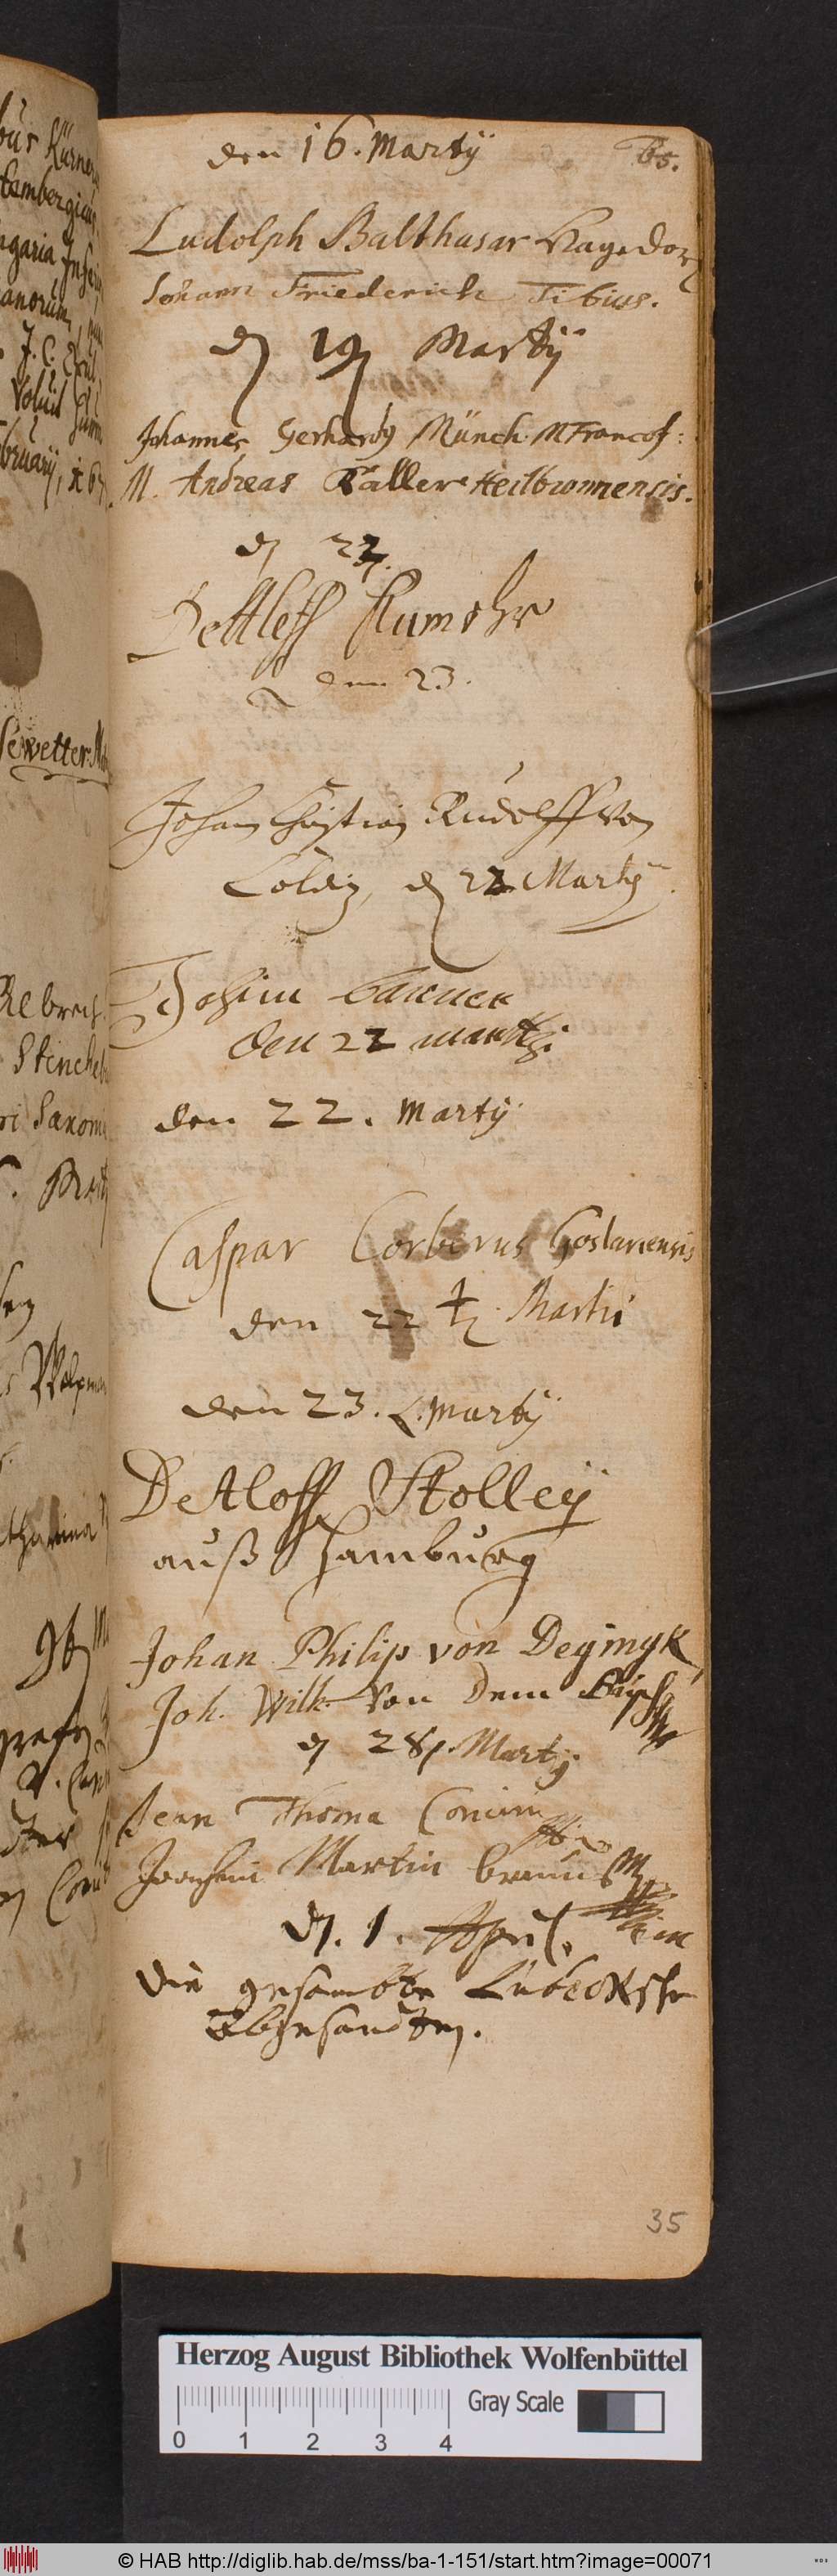 den 16. Martÿ
65.
Ludolph Balthasar Hagedorn
Johann Friederich Tibius.
d 19 Martÿ
Johannes Gerhardg Münch. MFrancof:
M. Andreas Käller Heilbronnensis.
d 22.
Dettleff Rumohr
den 23.
Johan Christian Rudolff von
Coldiz, d 22 Martÿ
Jochim
den 22 marttzi
den 22. Martÿ
Caspar Corberus Goslariensis
den 22 Martii
den 23. Martÿ
Detloff Stolleÿ
auß Hamburg
Johan Philip von Deginyk
Joh. Wilh. von dem
d 28. Martÿ
Jean Thoma
Joachim Martin
d. 1. April.
die gesambte Lubeckshe
Abgesandten.
35
Herzog August Bibliothek Wolfenbüttel
Gray Scale
0 1 2 3 4
© HAB http://diglib.hab.de/mss/ba-1-151/start.htm?image=00071